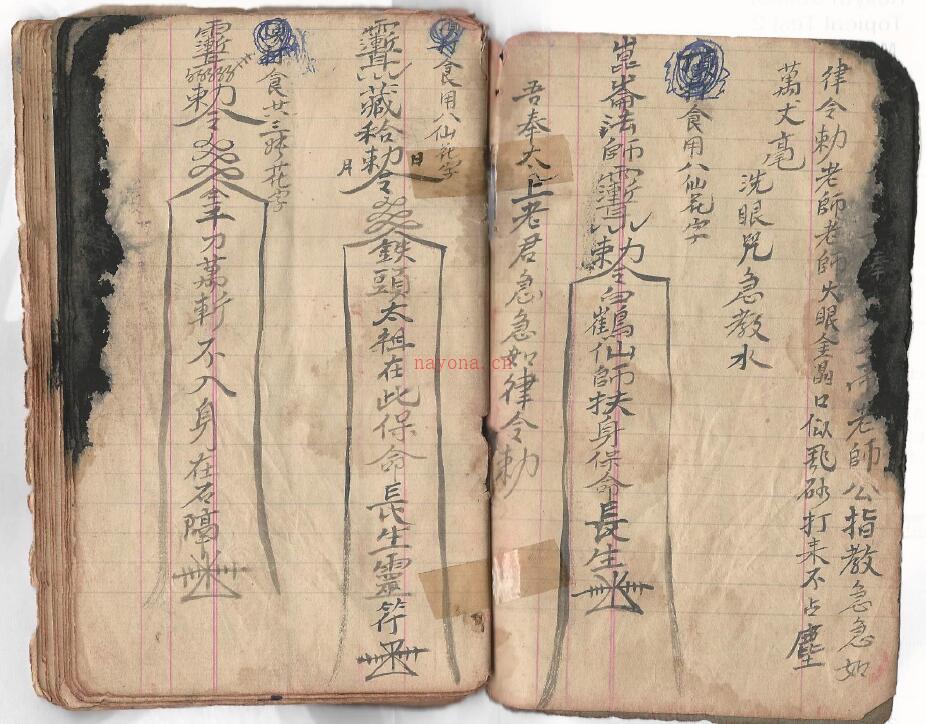 老師公指教急急如
律令勅老師老師火眼金晶口似飛砂打来不占塵
萬丈毫
洗眼咒急教水
食用八仙花字
崑崙法師勅令白鶴仙師扶身保命長生
吾奉太上老君急急如律令勅
食用八仙花字
藏給勅令鉄頭太祖在此保命長生靈符
日
月
食廿三
花字
勅令
刀萬斬不入身在石隔
nayona.cn